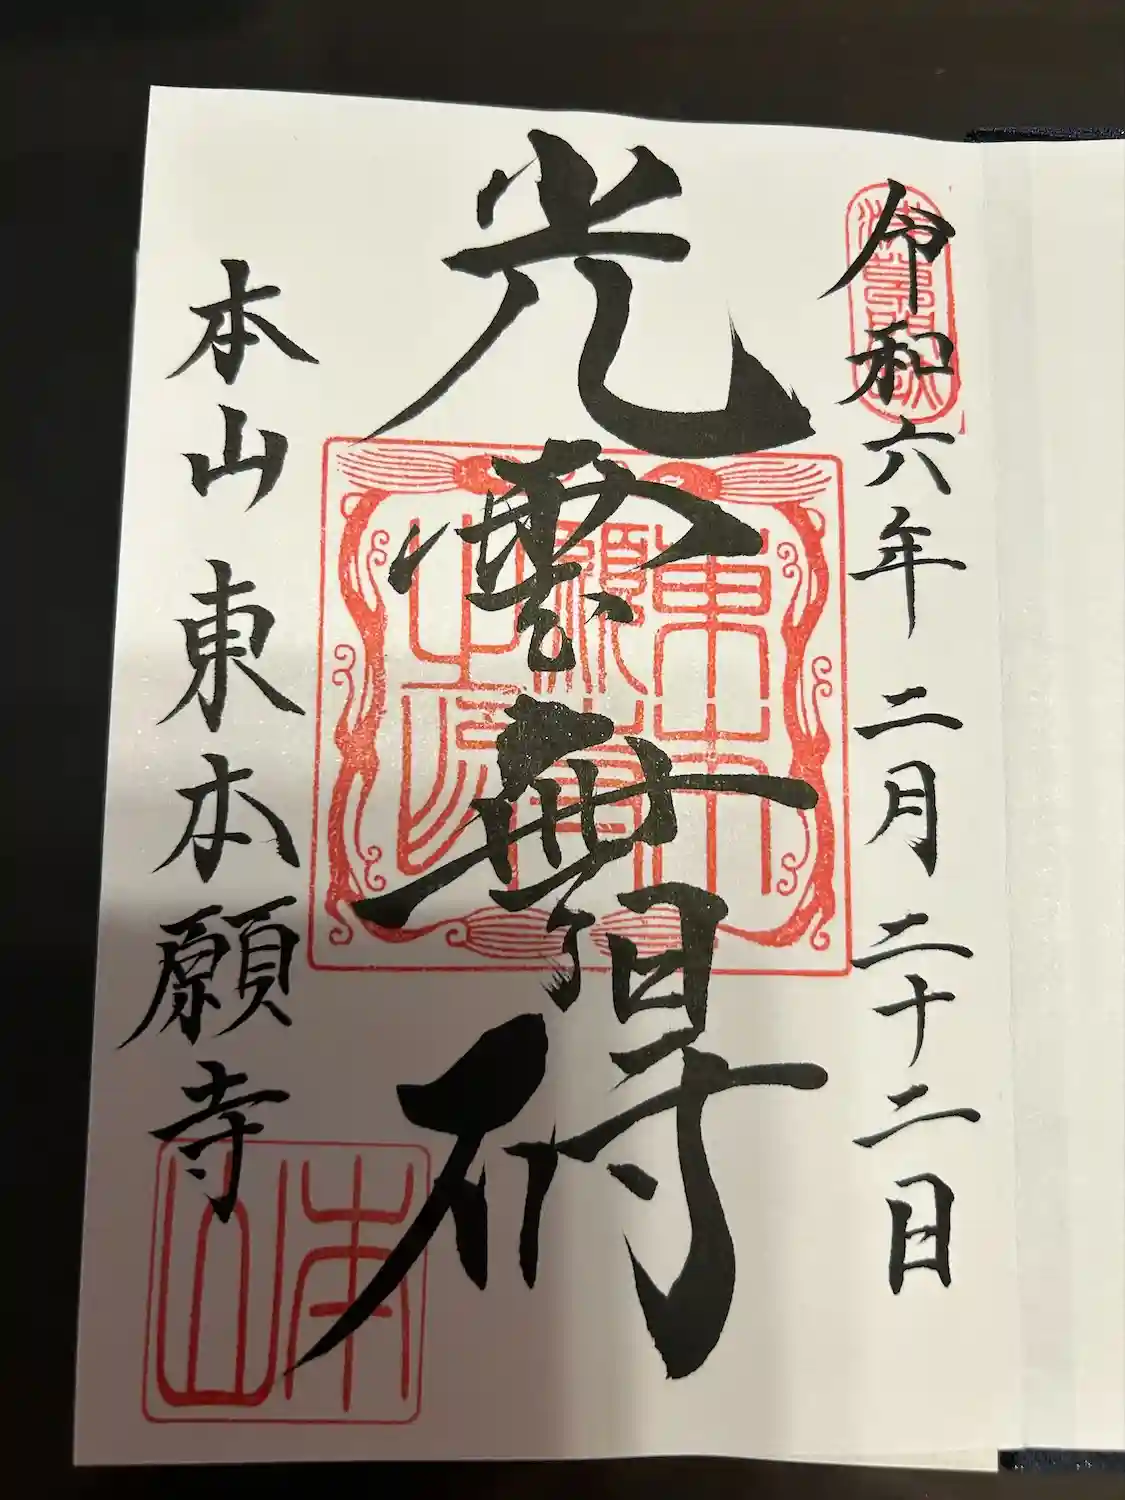 令和六年二月二十二日
光雲無碍
本山東本願寺
東本願寺之印
本山